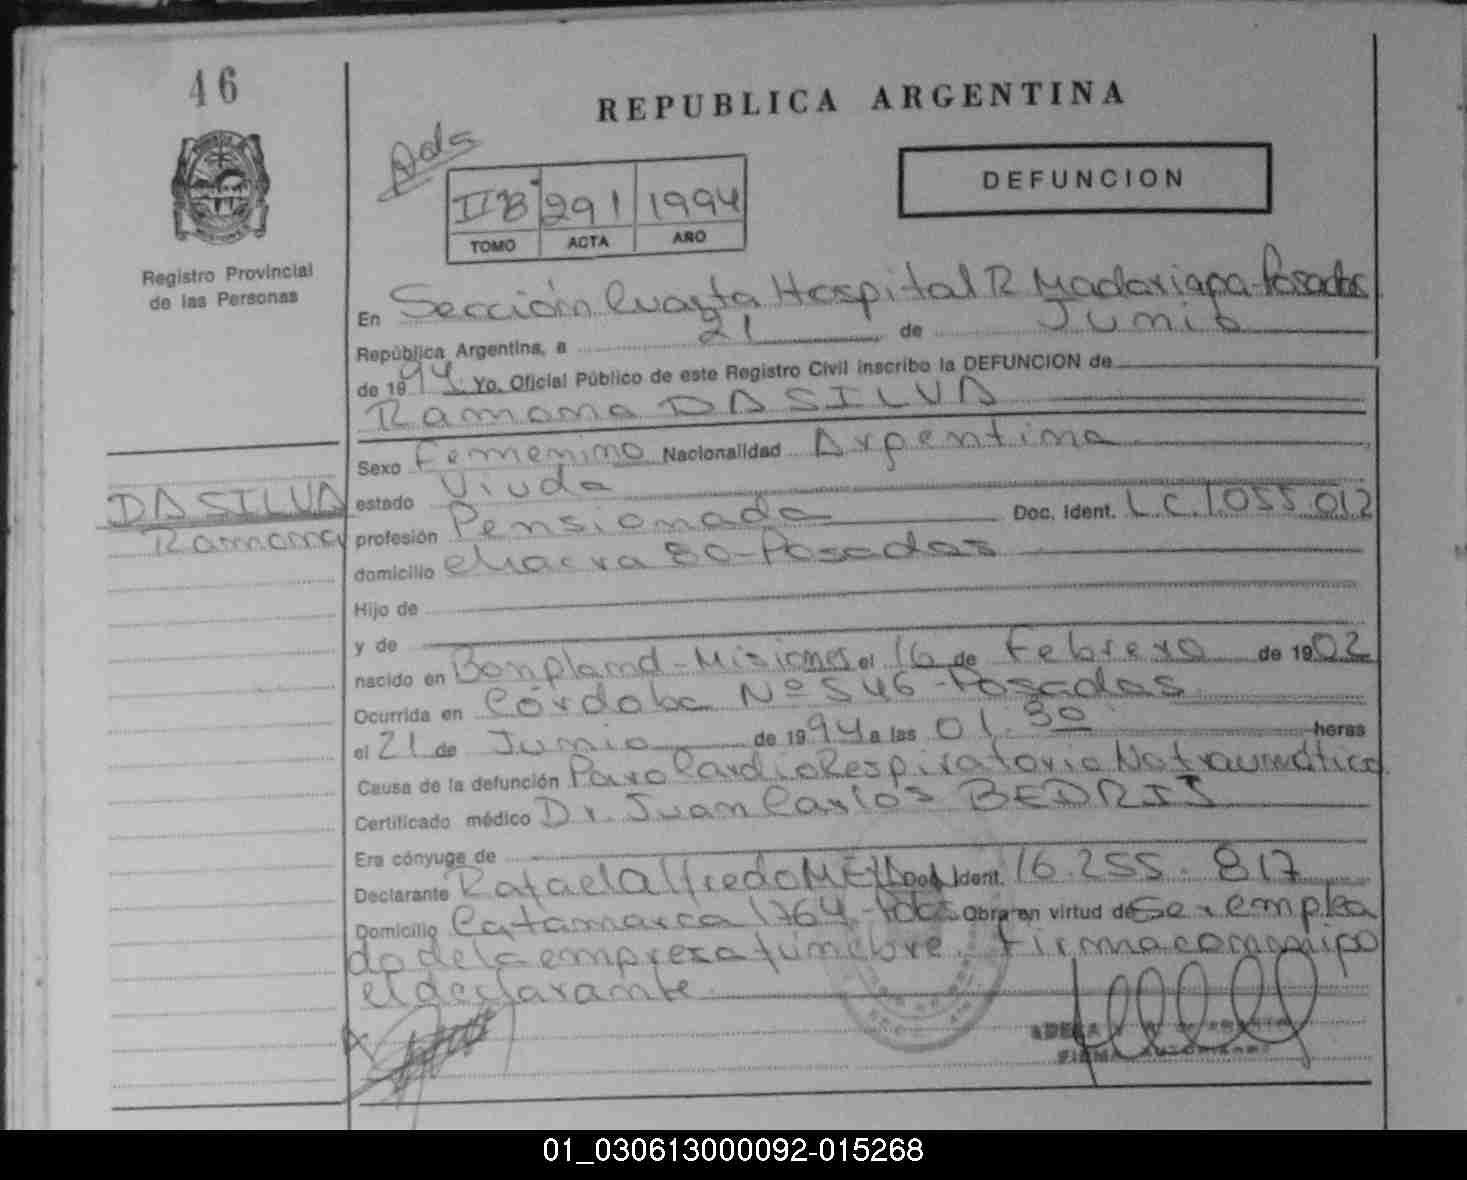 46
REPUBLICA ARGENTINA
Pdas
DEFUNCION
II B 291 1994
TOMO ACTA AÑO
Registro Provincial
de las Personas
En Sección Cuarta Hospital R Madariaga - Posadas
República Argentina, a 21 de Junio
de 1994. Yo, Oficial Público de este Registro Civil inscribo la DEFUNCION de
Ramona DA SILVA
Sexo Femenino Nacionalidad Argentina
DA SILVA
Ramona
estado Viuda
profesión Pensionada Doc. Ident. L.C. 1.055.012
domicilio chacra 80 - Posadas
Hijo de
y de
nacido en Bonpland - Misiones el 16 de Febrero de 1902
Ocurrida en Córdoba Nº 546 - Posadas
el 21 de Junio de 1994 a las 01.30 horas
Causa de la defunción Paro Cardio Respiratorio No traumático
Certificado médico Dr. Juan Carlos BEDRIJ
Era cónyuge de
Declarante Rafael Alfredo Doc. Ident. 16.255.817
Domicilio Catamarca 1764 - Pdas Obra en virtud de Ser emplea
do de la empresa fúnebre. Firma conmigo
el declarante
01_030613000092-015268